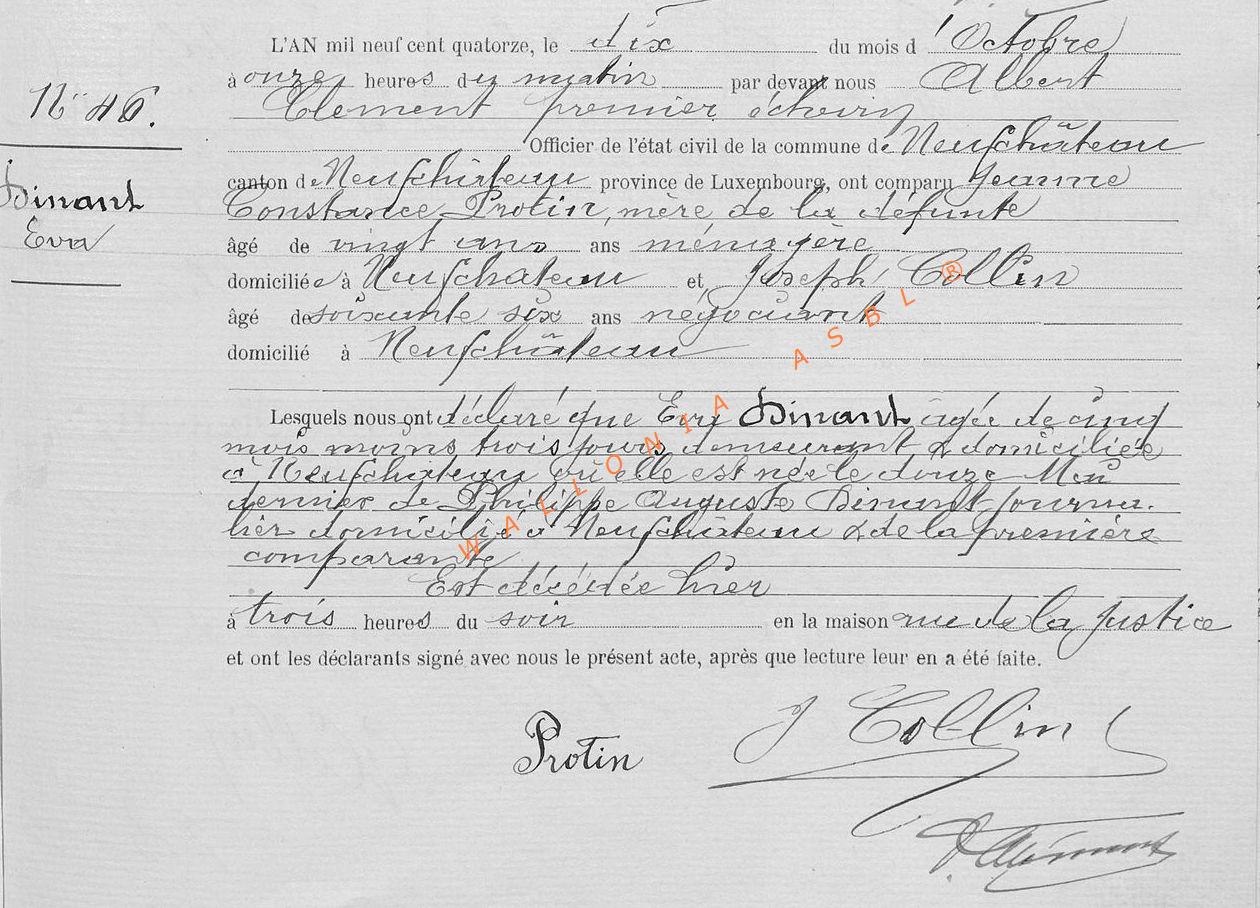 L'AN mil neuf cent quatorze, le dix du mois d'Octobre
à onze heures du matin par devant nous Albert
N° 46.
Clement premier échevin
Officier de l'état civil de la commune de Neufchâteau
canton de Neufchâteau province de Luxembourg, ont comparu Jeanne
Dinant
Constance Protin, mère de la défunte
Eva
âgé de vingt ans ans ménagère
domiciliée à Neufchateau et Joseph Collin
âgé de soixante six ans négociant
domicilié à Neufchâteau
Lesquels nous ont déclaré que Eva Dinant agée de cinq
mois moins trois jours demeurant & domiciliée
à Neufchateau où elle est née le douze Mai
dernier de Philippe Auguste Dinant journa-
lier domicilié à Neufchâteau & de la première
comparante
Est décédée hier
à trois heures du soir en la maison rue de la Justice
et ont les déclarants signé avec nous le présent acte, après que lecture leur en a été faite.
J Collin
Protin
A Clément
WALLONIA ASBL ®